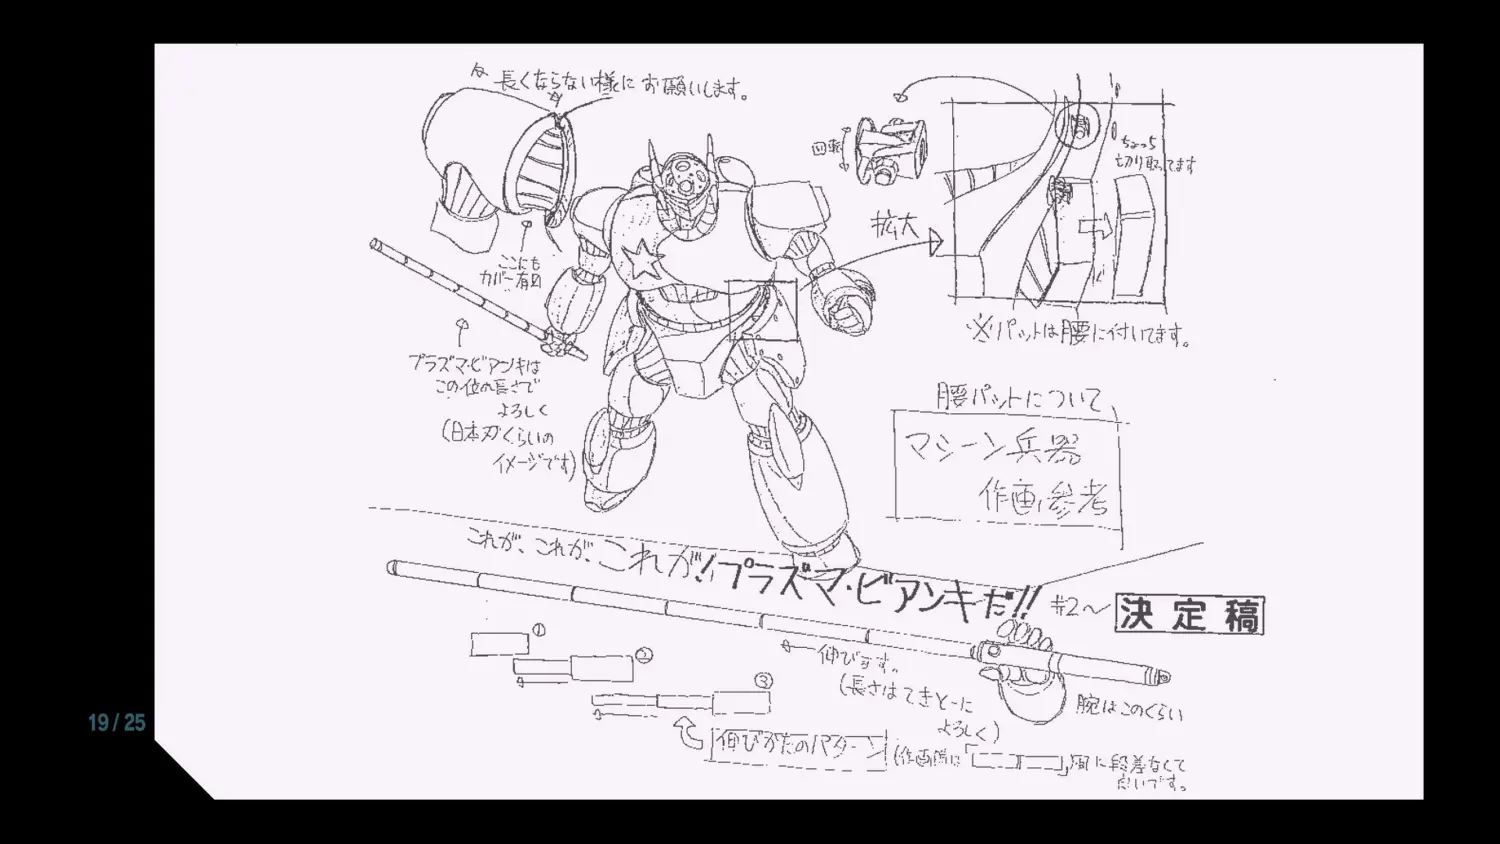 長くならない様にお願いします。
回転
ちょっち
切り取ってます
拡大
ここにも
カバー有り
※パットは腰に付いてます。
プラズマ・ビアンキは
この位の長さで
よろしく
(日本刀くらいの
イメージです)
腰パットについて
マシーン兵器
作画参考
これが、これが、これが!プラズマ・ビアンキだ!!
#2〜
決定稿
①
②
③
伸びます。
(長さはてきとーに
よろしく)
腕はこのくらい
伸びかたのパターン
(作画時は「 」間に段差なくて
だいです。
19 / 25